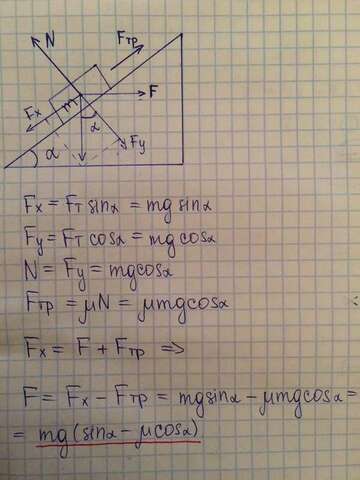 N Fтр
Fx m F
α Fy
α
Fx = Fт sinα = mg sinα
Fy = Fт cosα = mg cosα
N = Fy = mg cosα
Fтр = μN = μmg cosα
Fx = F + Fтр =>
F = Fx - Fтр = mg sinα - μmg cosα =
= mg (sinα - μ cosα)